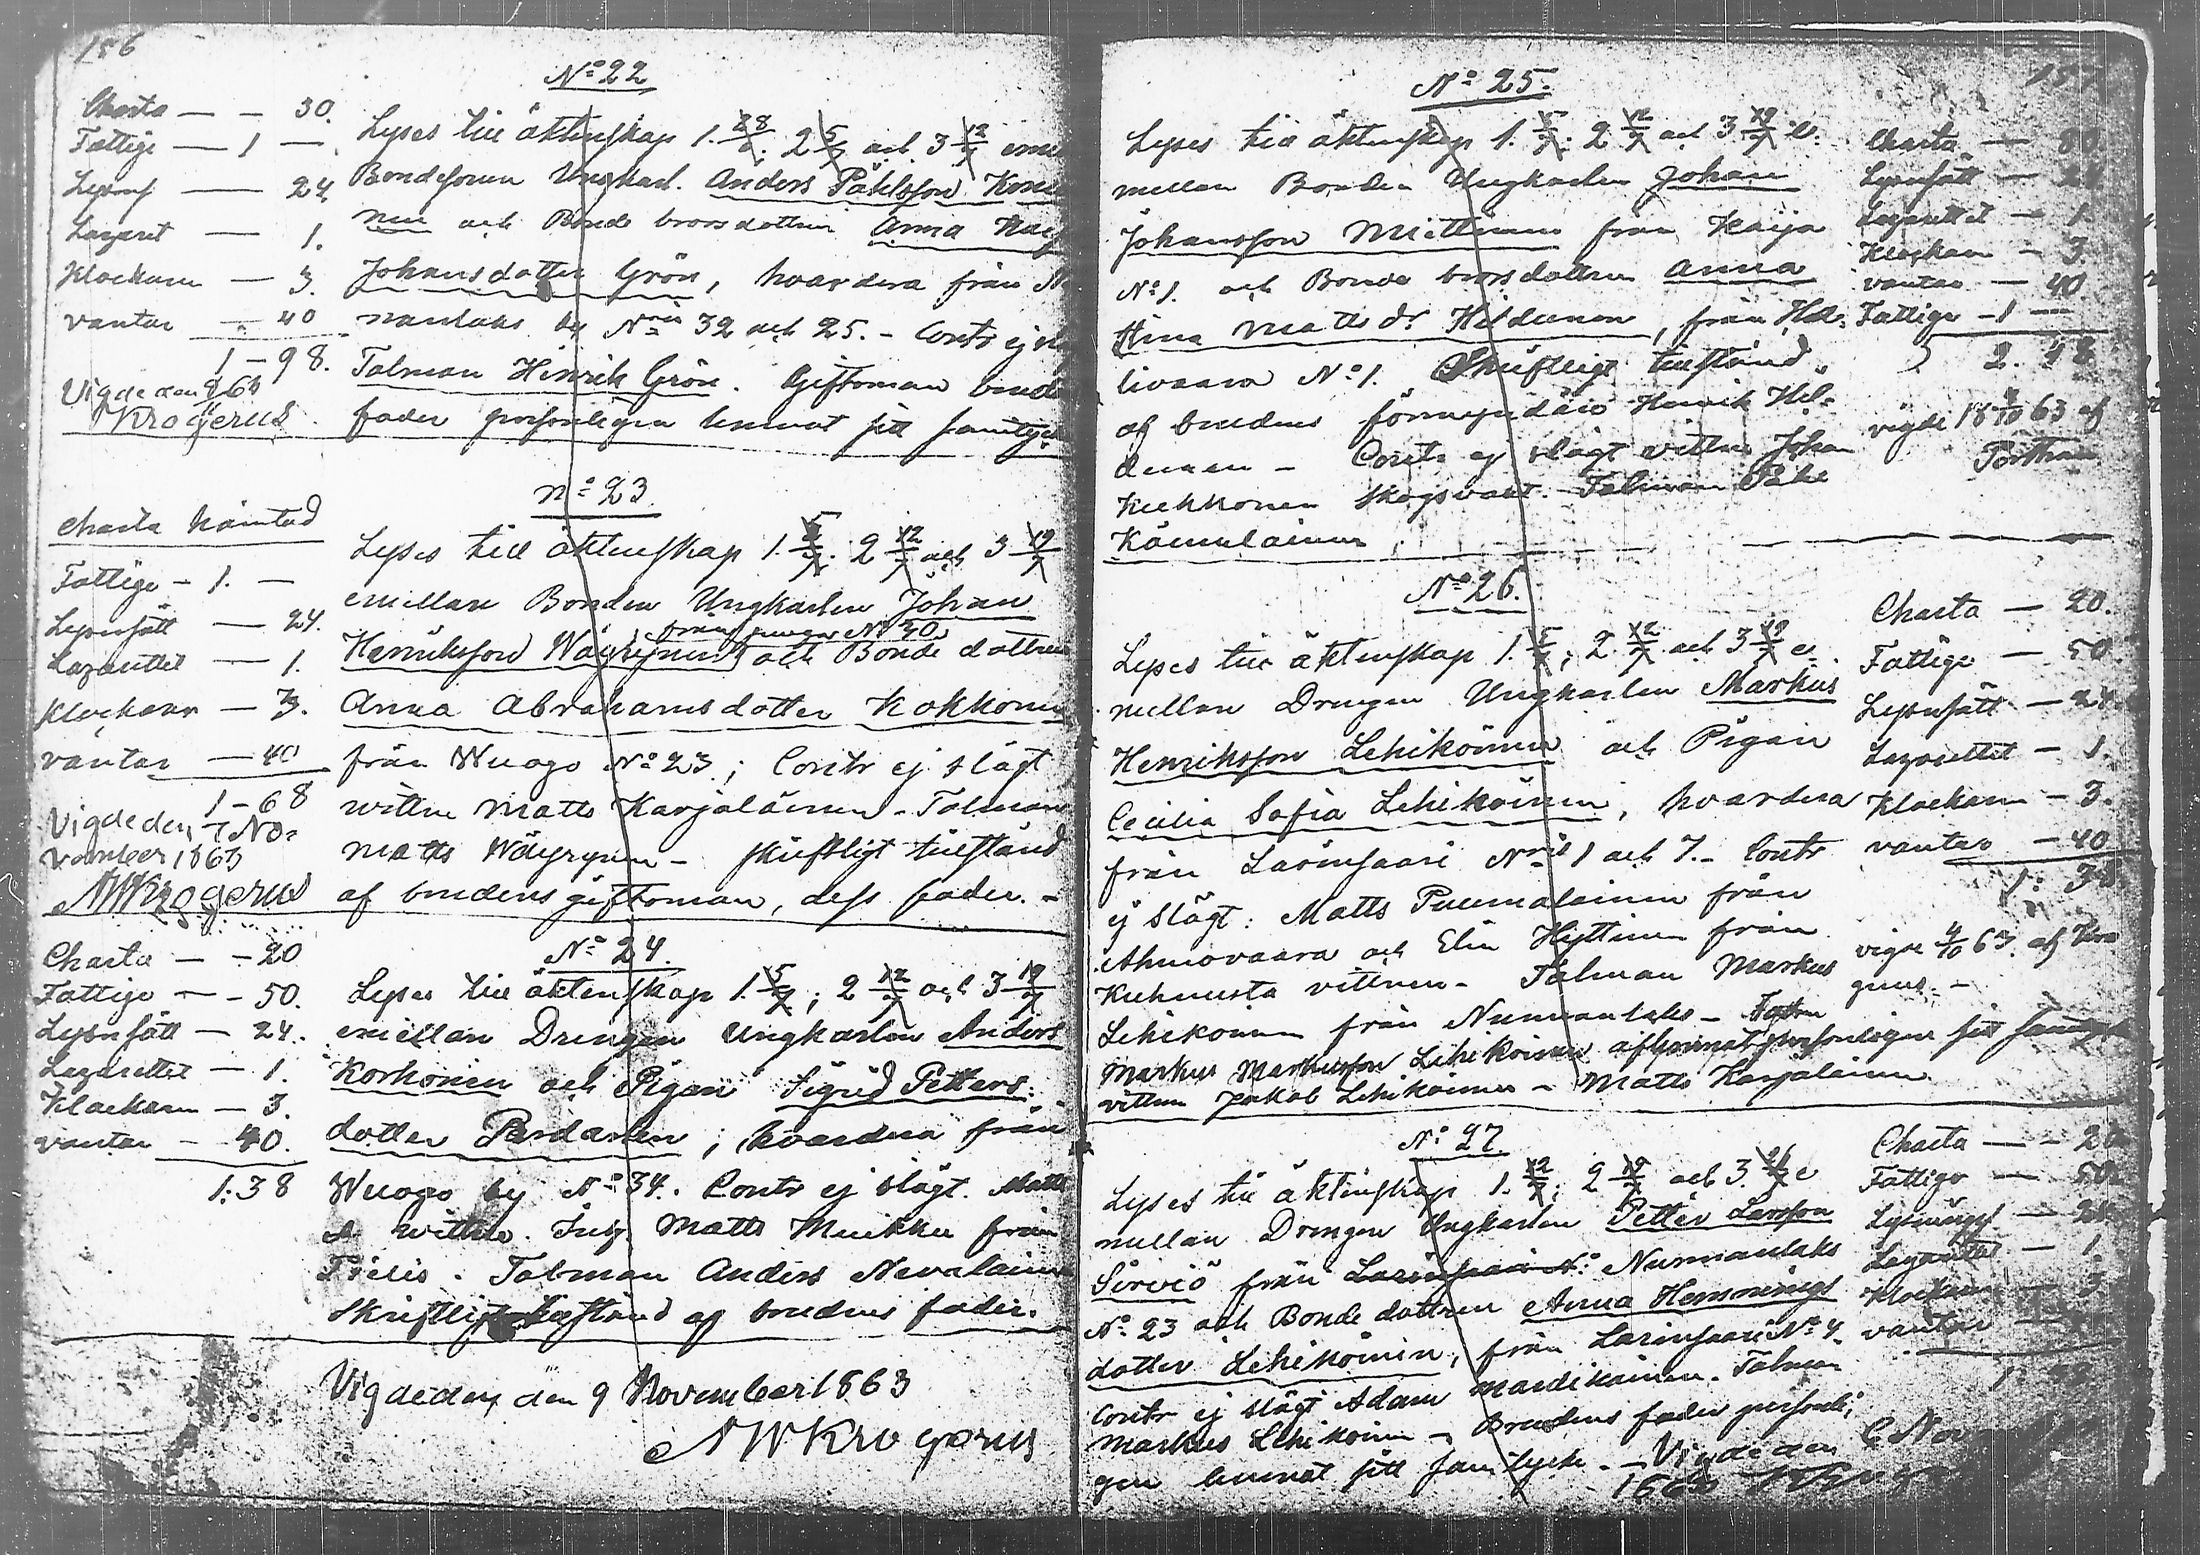 156
No 22
Charta — — 30.
Fattige — 1 —
Lysnf — 24
Lazaret — 1.
Klockarn — 3.
vantar — 40
1 – 98.
Vigde den
Krogerus
Lyses till äktenskap 1. 28/6; 2 5/7 och 3 12/7 emel
Bondesonen Ungkarl. Anders Påhlsson Kor
nen och Bonde brorsdottren Anna Kaj
Johansdotter Grön, hvardera från N
nanlaks by Nris 32 och 25. – Contr ej slä
Talman Hinrik Grön. Giftoman brude
fader personligen lemnat sitt samtyck
No 23.
Charta hämtad
Fattige – 1. —
Lysnsätt — 24.
Lazarettet — 1.
Klockarn — 3.
vantar — 40
1 – 68
Vigde den 7 No=
vember 1863
NWKrogerus
Lyses till äktenskap 1. 5/7; 2 12/7 och 3 19/7
emellan Bonden Ungkarlen Johan
från No 40
Henriksson Wäyrynen och Bonde dottren
Anna Abrahamsdotter Kokkonen
från Wuogo No 23; Contr ej slägt
vittne Matts Karjalainen – Talman
Matts Wäyrynen – skriftligt tillstånd
af brudens giftoman, dess fader. –
No 24.
Charta — – 20
Fattige — – 50.
Lysnsätt — 24.
Lazarettet — 1.
Klockarn — 3.
vantar — 40.
1:38
Lyses till äktenskap 1. 5/7; 2 12/7 och 3 19/7
emellan Drengen Ungkarlen Anders
Korhonen och Pigan Sigrid Petters=
dotter Pardanen; hvardera från
Wuogo by No 34. Contr ej slägt. Matts
vittne. Matts Muikku från
Talman Anders Nevalainen
Skriftligt tillstånd af brudens fader.
Vigde den 9 November 1863
NWKrogerus
157
No 25.
Lyses till äktenskap 1. 5/7; 2 12/7 och 3 19/7 e.
mellan Bonden Ungkarlen Johan
Johansson Miettinen från Kaija
No 1. och Bonde brorsdottren Anna
Stina Matts dr Hildunen, från Hal=
livaara No 1. Skriftligt tillstånd
af brudens förmyndare Henrik Hil=
dunen – Contr ej slägt vittne Johan
Kukkonen skogsvakt. Talman Påhl
Kämäläinen
Charta —
Lysnsätt — 24
Lazarettet — 1.
Klockarn — 3
vantar — 40
Fattige – 1 —
2.
vigde 63 af
Porthan
No 26.
Lyses till äktenskap 1. 5/7; 2 12/7 och 3 19/7 e.
mellan Drengen Ungkarlen Markus
Henriksson Lehikoinen och Pigan
Cecilia Sofia Lehikoinen, hvardera
från Larinsaari Nris 1 och 7. – Contr
ej slägt: Matts Puumalainen från
Ahmovaara och Elin Hyttinen från
vittnen – Talman Markus
Lehikoinen från Nunnanlaks – Fadren
Markus Markusson Lehikoinen aflemnat personligen sitt samtycke
vittnen Jakob Lehikoinen – Matts Karjalainen.
Charta — 20.
Fattige — 50.
Lysnsätt — 24.
Lazarettet — 1.
Klockarn — 3.
vantar — 40
1: 38
vigde 4/10 63. af Kro
gerus. –
No 27.
Lyses till äktenskap 1. 12/7; 2 19/7 och 3 26/7 e
mellan Drengen Ungkarlen Petter Larsson
Sirviö från Larinsaari No: Nunnanlaks
No 23 och Bonde dottren Anna Hemmings
dotter Lehikoinen, från Larinsaari No 4.
Contr ej slägt Adam Mardikainen. Talman
Markus Lehikoinen – Brudens fader personli=
gen lemnat sitt samtycke. – Vigde den 6 Nov
1863
Charta — – 20
Fattige — 50
— 24
Lazarettet — 1
Klockarn — 3
vantar —